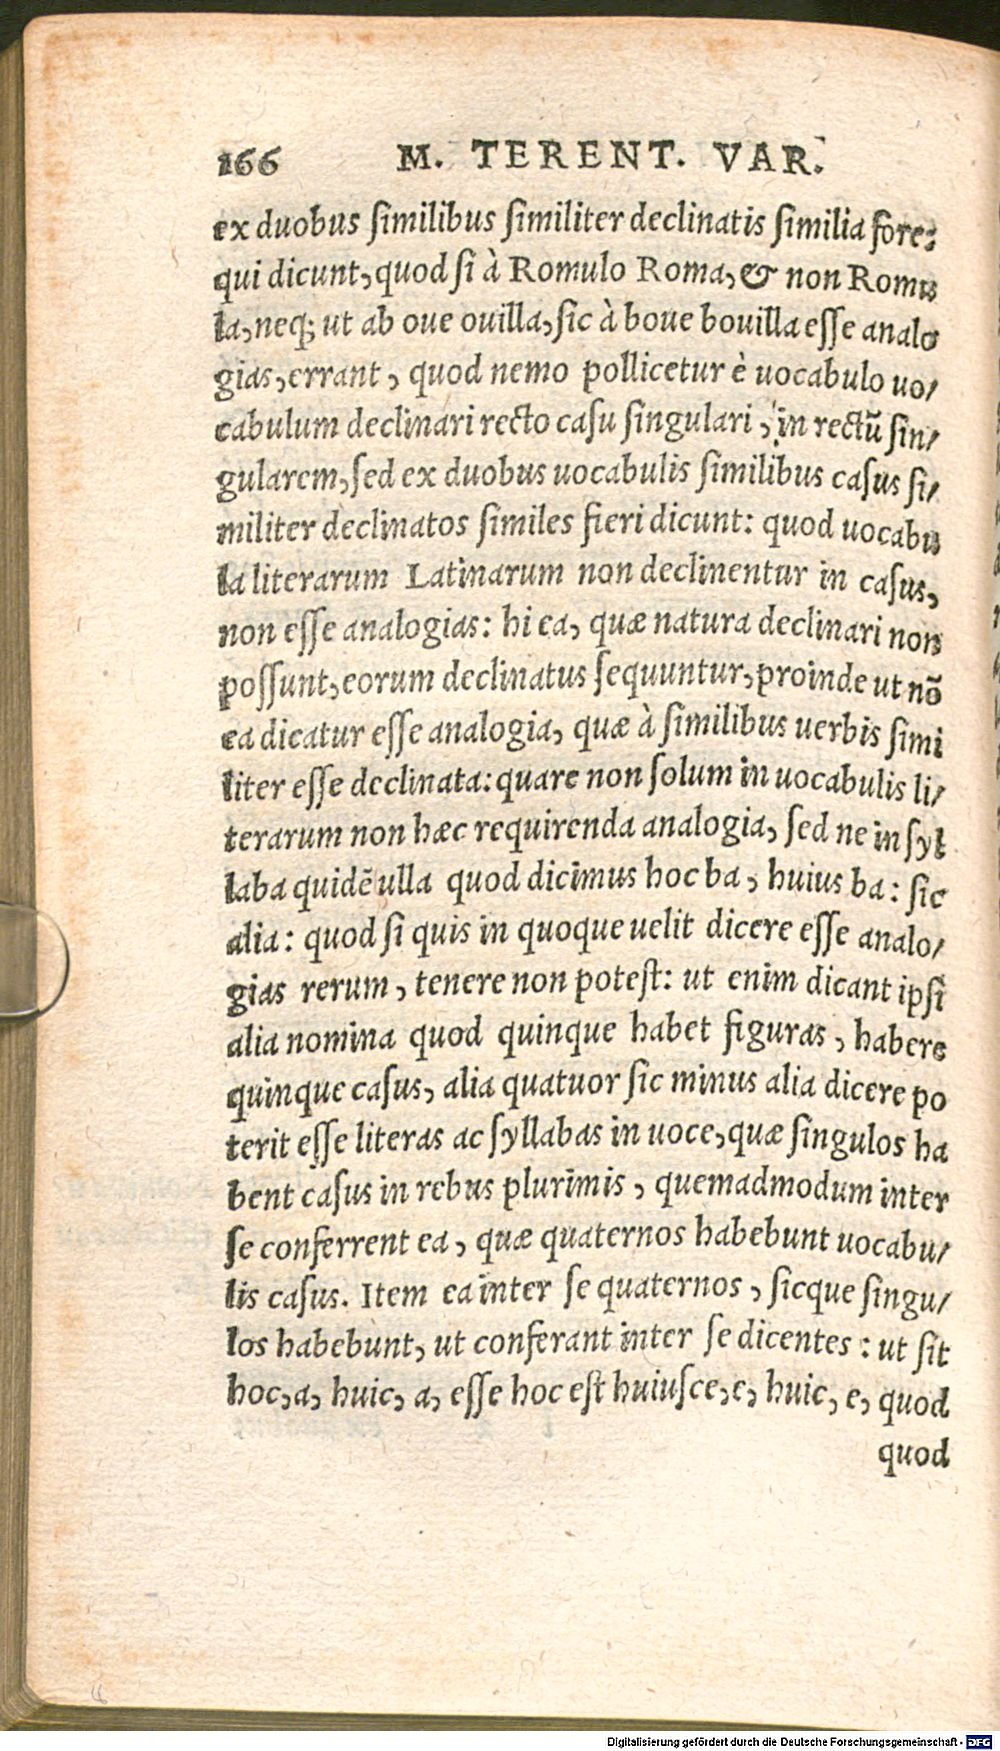 166 M. TERENT. VAR.
ex duobus ſimilibus ſimiliter declinatis ſimilia fore:
qui dicunt, quod ſi à Romulo Roma, & non Romu
la, neq; ut ab oue ouilla, ſic à boue bouilla eſſe analo
gias, errant, quod nemo pollicetur è uocabulo uo/
cabulum declinari recto caſu ſingulari, in rectū ſin/
gularem, ſed ex duobus uocabulis ſimilibus caſus ſi/
militer declinatos ſimiles fieri dicunt: quod uocabu
la literarum Latinarum non declinentur in caſus,
non eſſe analogias: hi ea, quæ natura declinari non
poſſunt, eorum declinatus ſequuntur, proinde ut nō
ea dicatur eſſe analogia, quæ à ſimilibus uerbis ſimi
liter eſſe declinata: quare non ſolum in uocabulis li/
terarum non hæc requirenda analogia, ſed ne in ſyl
laba quidē ulla quod dicimus hoc ba, huius ba: ſic
alia: quod ſi quis in quoque uelit dicere eſſe analo/
gias rerum, tenere non poteſt: ut enim dicant ipſi
alia nomina quod quinque habet figuras, habere
quinque caſus, alia quatuor ſic minus alia dicere po
terit eſſe literas ac ſyllabas in uoce, quæ ſingulos ha
bent caſus in rebus plurimis, quemadmodum inter
ſe conferrent ea, quæ quaternos habebunt uocabu/
lis caſus. Item ea inter ſe quaternos, ſicque ſingu/
los habebunt, ut conferant inter ſe dicentes: ut ſit
hoc, a, huic, a, eſſe hoc eſt huiuſce, e, huic, e, quod
quod
Digitalisierung gefördert durch die Deutsche Forschungsgemeinschaft - DFG